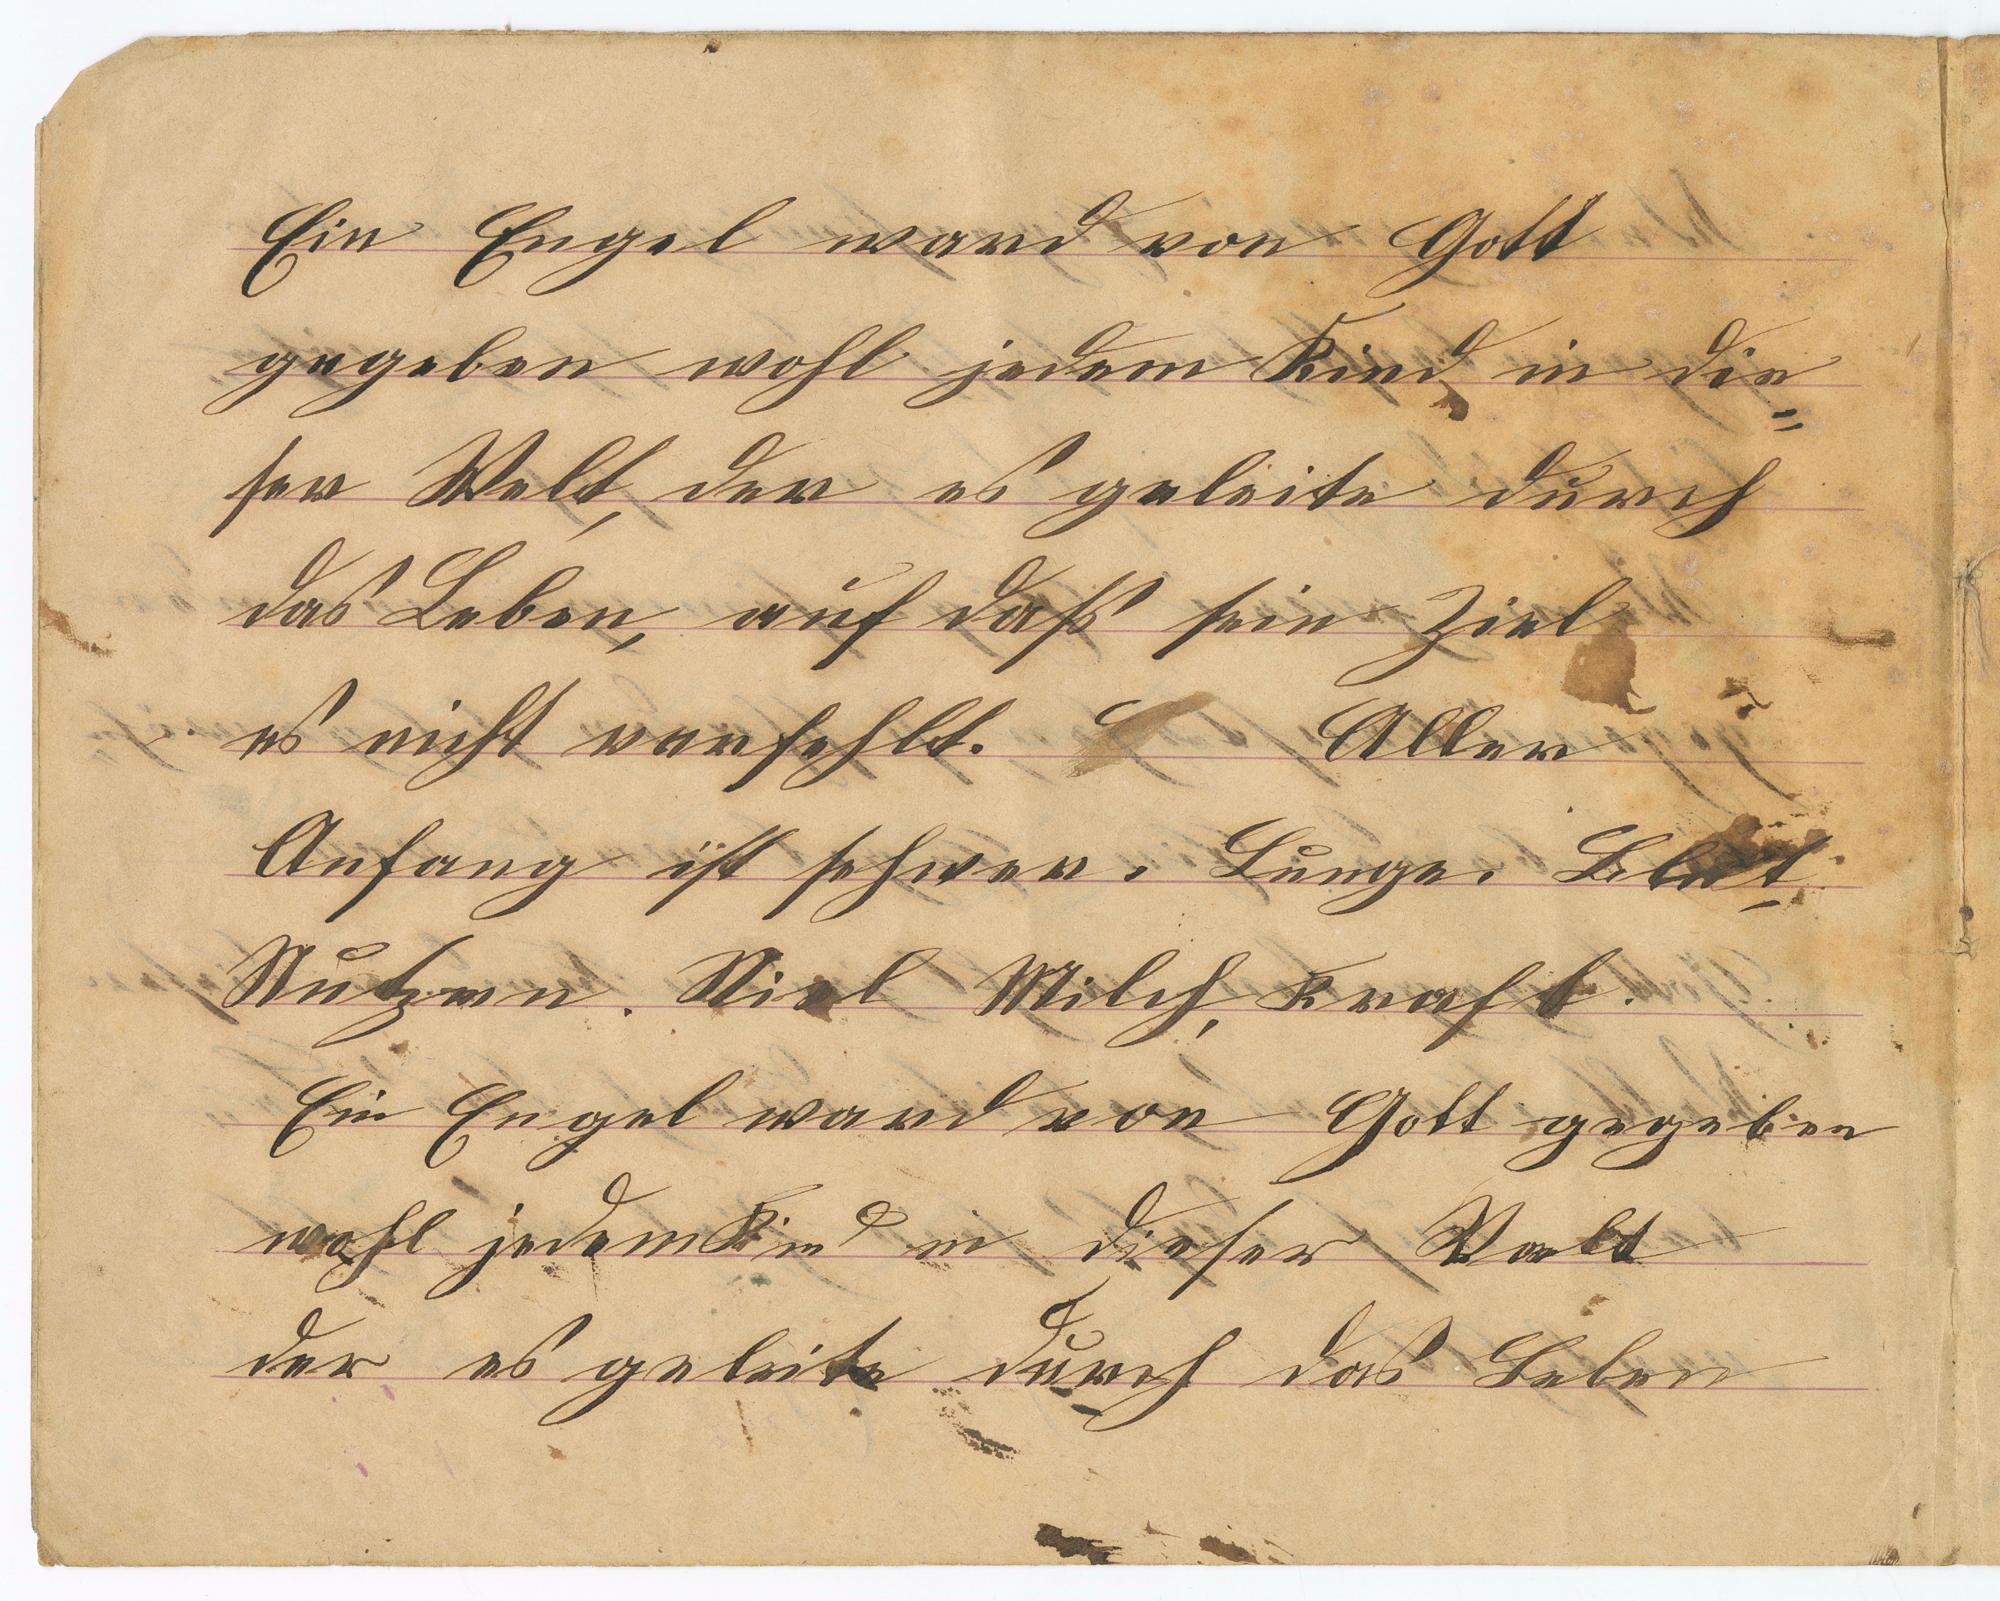 Ein Engel ward von Gott
gegeben wohl jedem Kind in die=
ser Welt, der es geleite durch
das Leben, auf daß sein Ziel
es nicht verfehlt. Aller
Anfang ist schwer. Lunge. Blut
Nutzen. Viel Milch, Kraft.
Ein Engel ward von Gott gegeben
wohl jedem Kind in dieser Welt
der es geleite durch das Leben